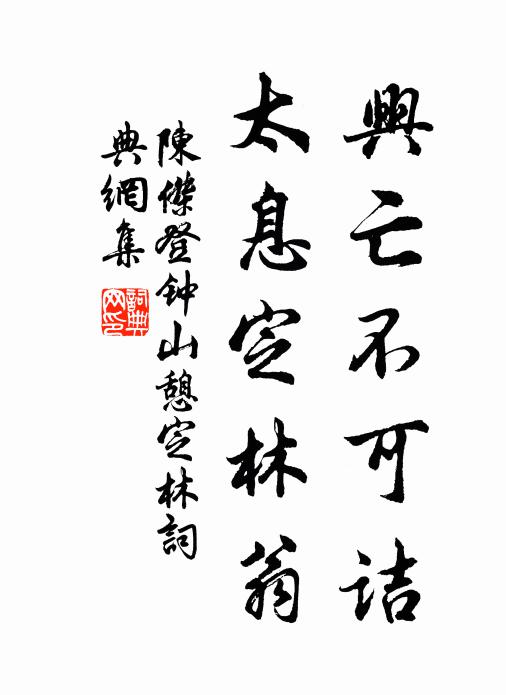 興亡不可詰
太息定林翁
陳傑登钟山憩定林詞
典網集
詞典網印